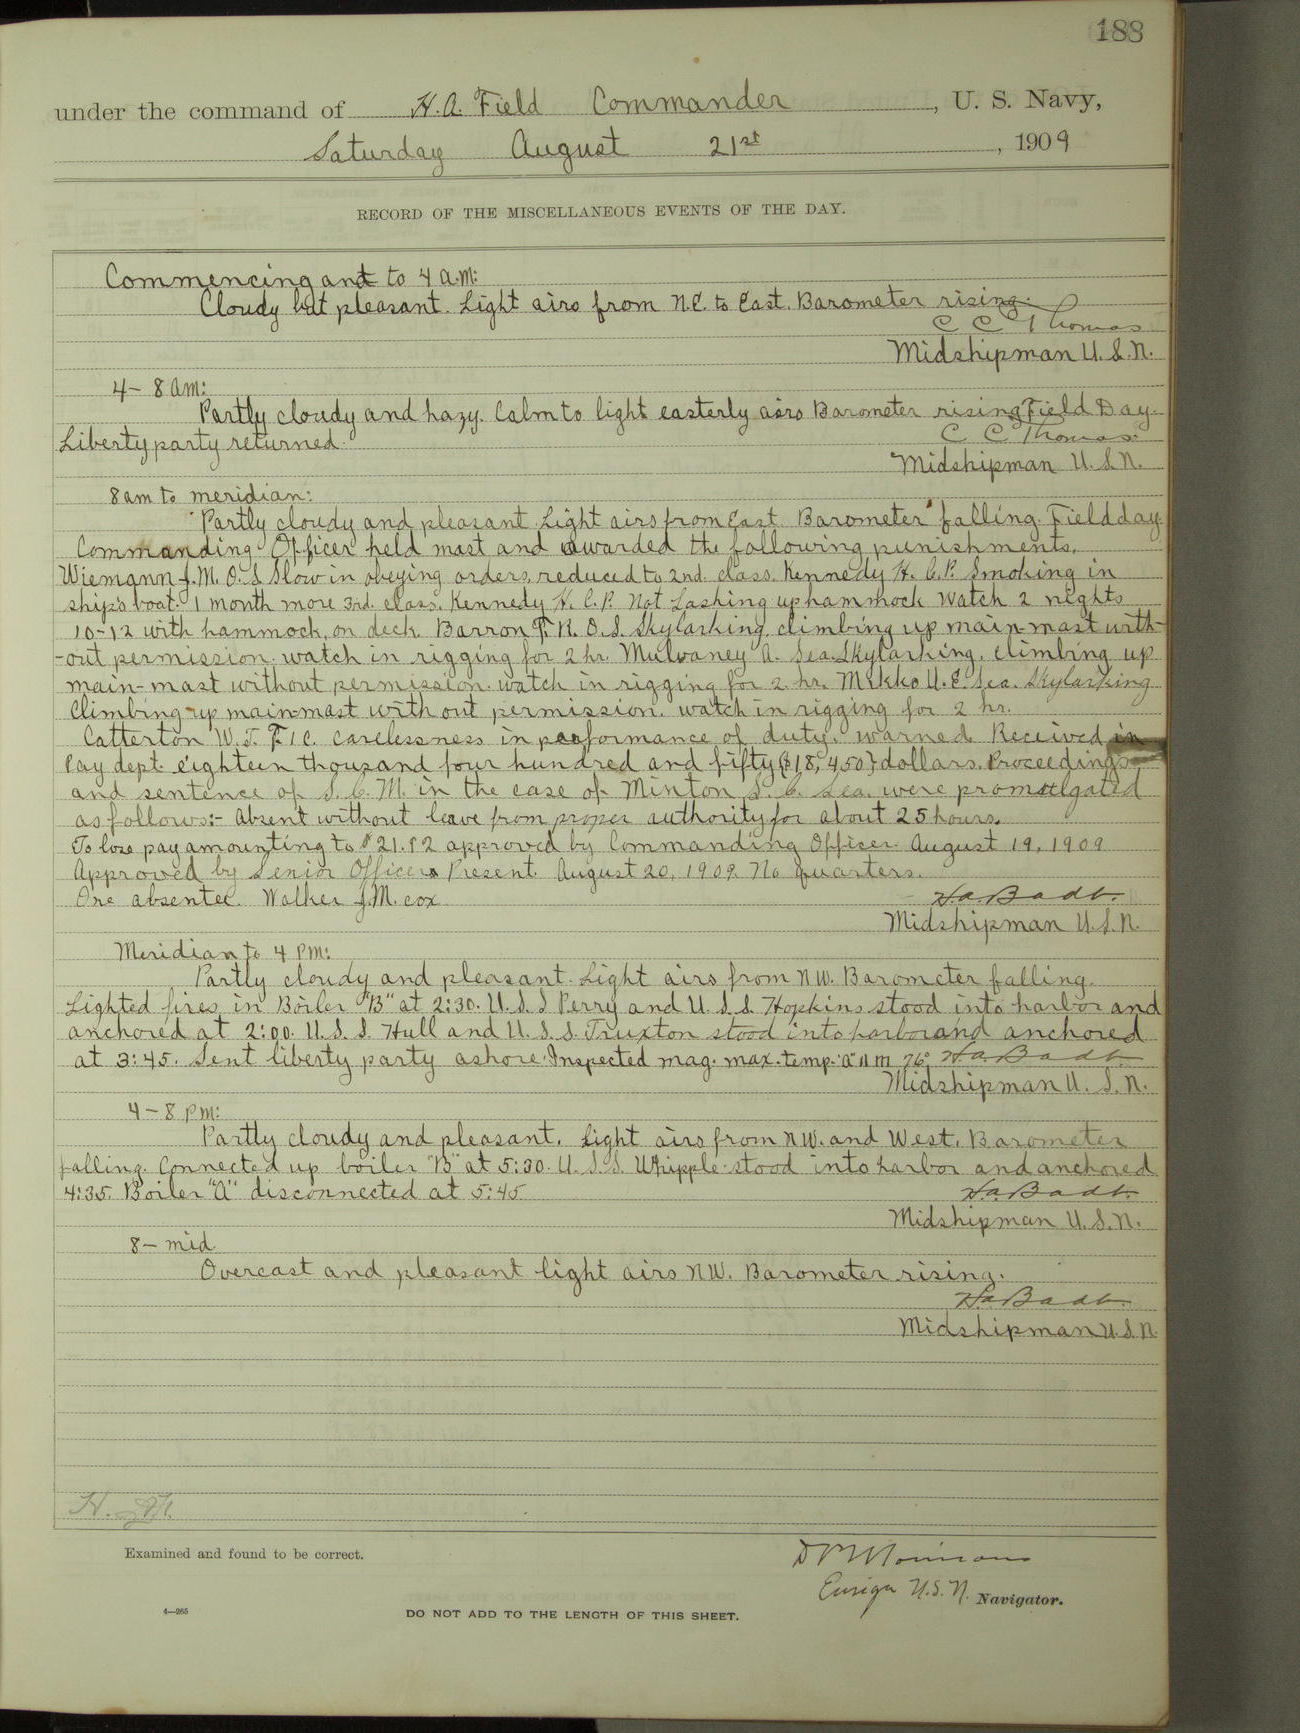 188
under the command of H. A. Field Commander, U. S. Navy,
Saturday August 21st, 1909
RECORD OF THE MISCELLANEOUS EVENTS OF THE DAY.
Commencing and to 4 A.M:
Cloudy but pleasant. Light airs from N.E. to East. Barometer rising.
C C Thomas
Midshipman U.S.N.
4 – 8 am:
Partly cloudy and hazy. Calm to light easterly airs Barometer rising Field Day.
Liberty party returned.
C C Thomas
Midshipman U.S.N.
8 am to meridian:
Partly cloudy and pleasant. Light airs from East Barometer falling. Field day.
Commanding Officer held mast and awarded the following punishments.
Wiemann J.M. O.S. Slow in obeying orders, reduced to 2nd. class. Kennedy H. C.P. Smoking in
ships boat. 1 month more 3rd. class. Kennedy H. C.P. Not Lashing up hammock Watch 2 nights
10-12 with hammock, on deck. Barron F.R. O.S. Skylarking, climbing up main mast with-
-out permission. watch in rigging for 2 hr. Mulvaney A. Sea. Skylarking, climbing up
main-mast without permission. watch in rigging for 2 hr. Mikko U.E. Sea. Skylarking
Climbing up main-mast without permission. watch in rigging for 2 hr.
Catterton W.T. F.1C. carelessness in performance of duty. warned. Received in
Pay dept. eighteen thousand four hundred and fifty ($18,450) dollars. Proceedings
and sentence of S.C.M. in the case of Minton S.C. Sea. were promulgated
as follows:- Absent without leave from proper authority for about 25 hours.
To lose pay amounting to $21.12 approved by Commanding Officer August 19, 1909
Approved by Senior Officer Present. August 20, 1909. No quarters.
One absentee. Walker J.M. cox
H.A. Badt.
Midshipman U.S.N.
Meridian to 4 PM:
Partly cloudy and pleasant. Light airs from NW. Barometer falling.
Lighted fires in Boiler "B" at 2:30. U.S.S Perry and U.S.S. Hopkins stood into harbor and
anchored at 2:00. U.S.S. Hull and U.S.S. Truxton stood into harbor and anchored
at 3:45. Sent liberty party ashore. Inspected mag. max. temp. 76°
H.A. Badt.
Midshipman U.S.N.
4 – 8 PM:
Partly cloudy and pleasant. Light airs from NW. and West. Barometer
falling. Connected up boiler "B" at 5:30. U.S.S. Whipple stood into harbor and anchored
4:35. Boiler "A" disconnected at 5:45
H.A. Badt.
Midshipman U.S.N.
8 – mid
Overcast and pleasant light airs NW. Barometer rising.
H.A. Badt.
Midshipman U.S.N.
Examined and found to be correct.
Ensign U.S.N. Navigator.
4—265
DO NOT ADD TO THE LENGTH OF THIS SHEET.